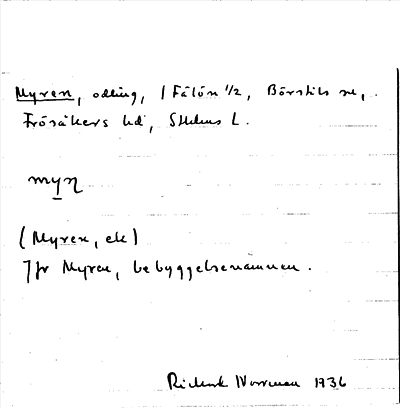 Myren, odling, 1 Fälön 1/2, Börstils sn,
Frösåkers hd, Sthlms l.
myn
(Myren, ek)
Jfr Myren, bebyggelsenamnen.
Rickard Norrman 1936